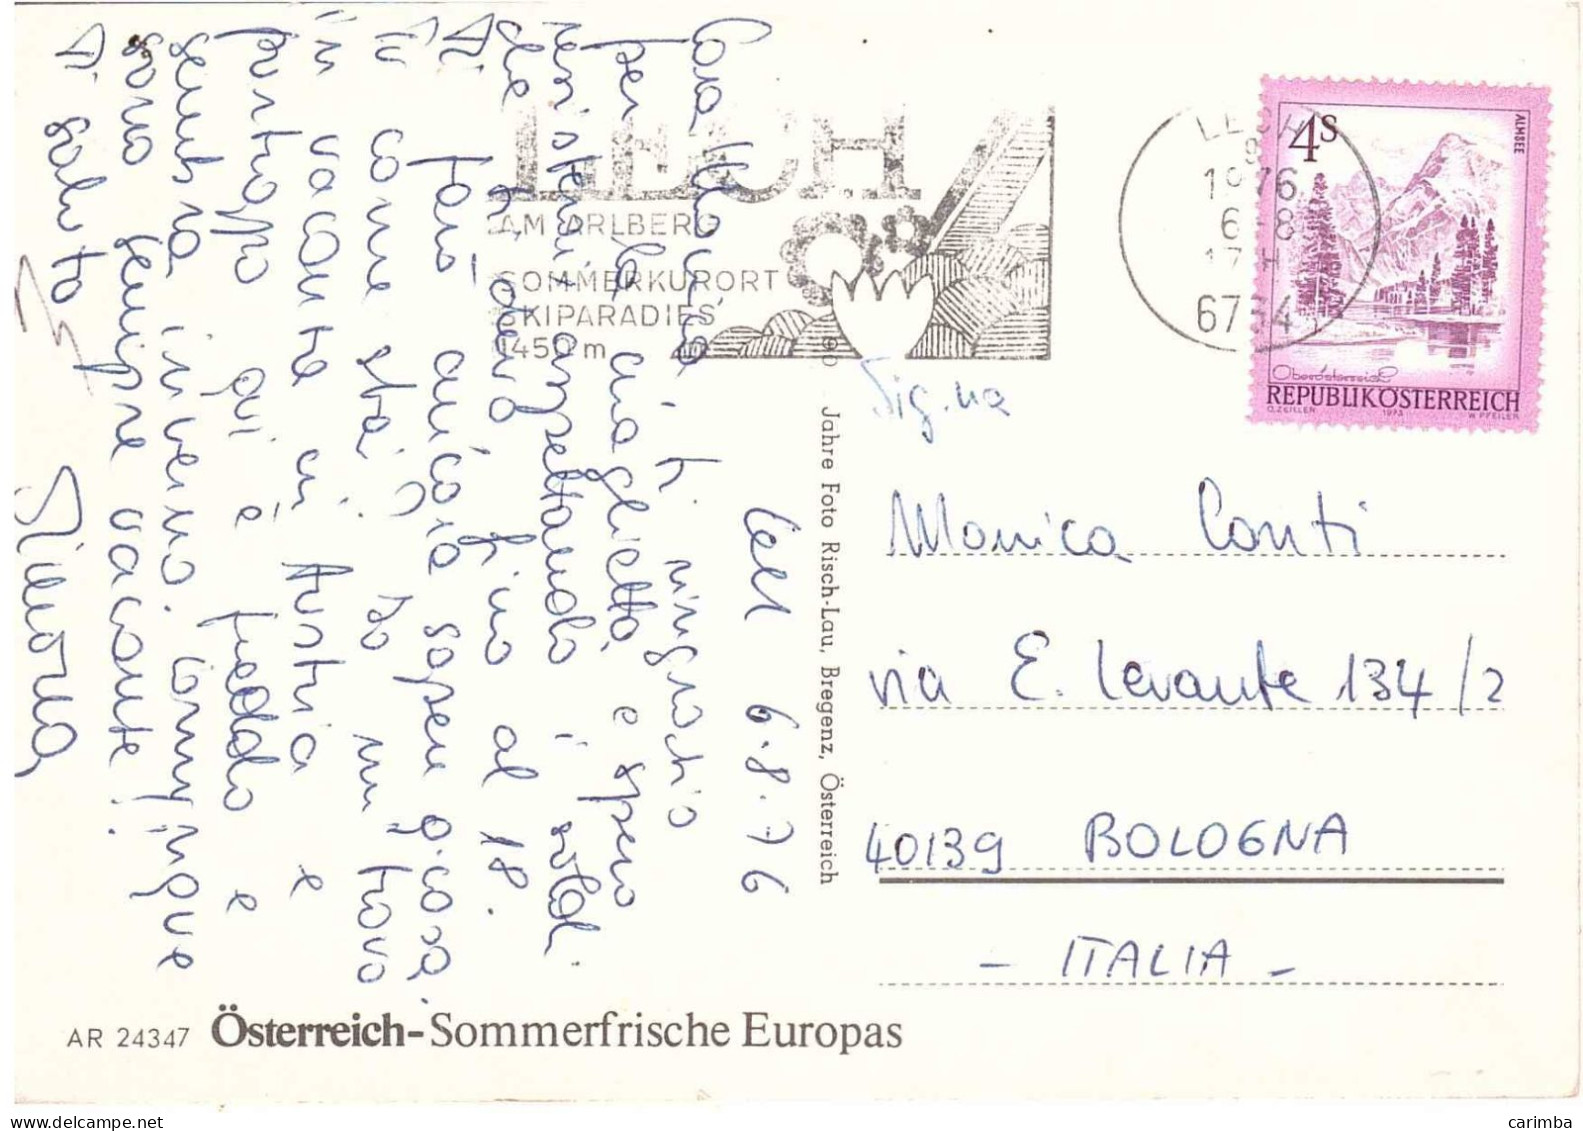 Lech 6.8.76
Cara Monica ti ringrazio
per la maglietta e spero
che Ti, però, fino al 18.
Ti farò ancora sapere q.cosa.
Tu come stai? Io mi trovo
in vacanza in Austria e
purtroppo qui è freddo e
sembra inverno. Comunque
sono sempre vacanze!
Ti saluto
LECH
AM ARLBERG
SOMMERKURORT
SKIPARADIES
1450 m
LECH
9
1976
6 8
17 H
6764
4S
ALMSEE
Oberösterreich
REPUBLIK ÖSTERREICH
O. ZEILLER 1973 W. PFEILER
90 Jahre Foto Risch-Lau, Bregenz, Österreich
Sig.na
Monica Conti
via E. Levante 134/2
40139 BOLOGNA
- ITALIA -
AR 24347 Österreich-Sommerfrische Europas
carimba